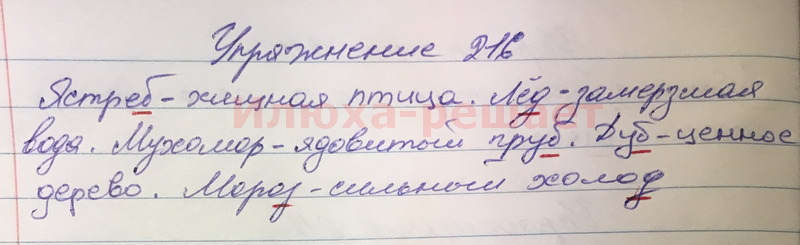 Упражнение 216
Ястреб - хищная птица. Лёд - замерзшая
илюха-решает
вода. Мухомор - ядовитый гриб. Дуб - ценное
дерево. Мороз - сильный холод